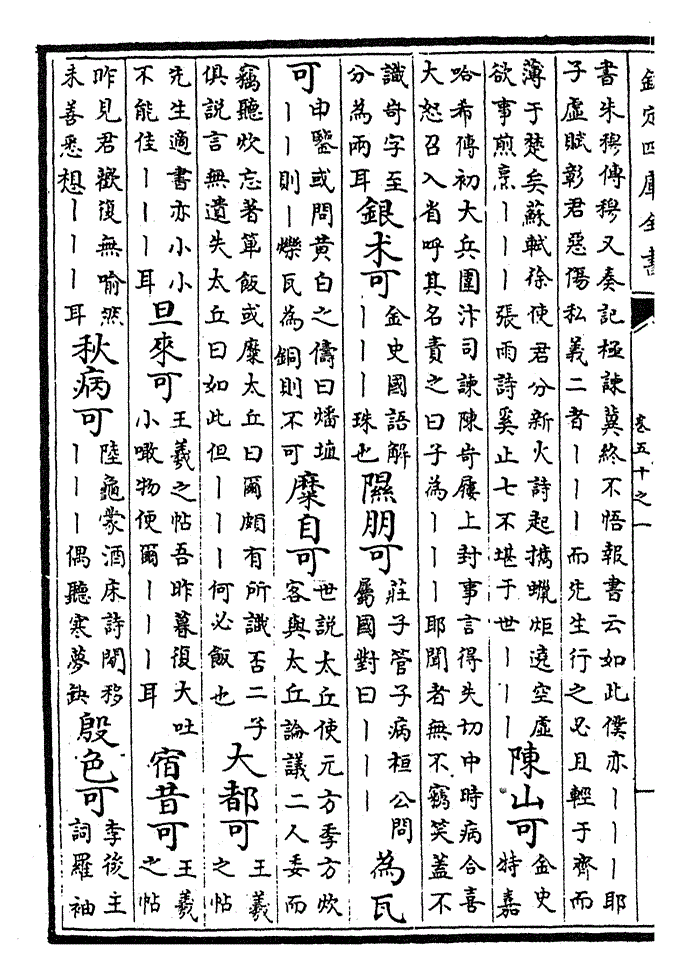 欽定四庫全書
卷五十之一
書朱穆傳穆又奏記極諫冀終不悟報書云如此僕亦丨丨丨耶
子虛賦彰君惡傷私義二者丨丨丨而先生行之必且輕于齊而
薄于楚矣蘇軾徐使君分新火詩起攜蠟炬遶空虛
欲事煎烹丨丨丨張雨詩奚止七不堪于世丨丨丨
陳山可
金史
特嘉
哈希傳初大兵圍汴司諫陳岢屢上封事言得失切中時病合喜
大怒召入省呼其名責之曰子為丨丨丨耶聞者無不竊笑蓋不
識岢字至
分為兩耳
銀术可
金史國語解
丨丨丨珠也
隰朋可
莊子管子病桓公問
屬國對曰丨丨丨
為瓦
可
申鑒或問黃白之儔曰燔埴
丨丨則丨爍瓦為銅則不可
糜自可
世説太丘使元方季方炊
客與太丘論議二人委而
竊聽炊忘著箄飯或糜太丘曰爾頗有所識否二子
俱説言無遺失太丘曰如此但丨丨丨何必飯也
大都可
王羲
之帖
先生適書亦小小
不能佳丨丨丨耳
旦來可
王羲之帖吾昨暮復大吐
小噉物便爾丨丨丨耳
宿昔可
王羲
之帖
昨見君歡復無喻然
未善悉想丨丨丨耳
秋病可
陸龜蒙酒床詩閒移
丨丨丨偶聽寒夢缺
殷色可
李後主
詞羅袖